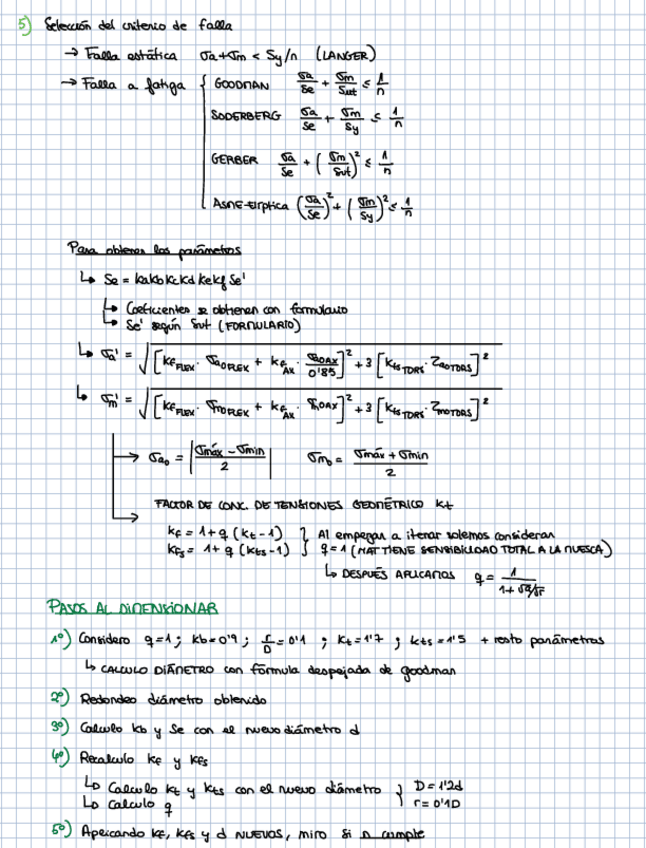 5) Selección del criterio de falla
→ Falla estática σa+σm < Sy/n (LANGER)
→ Falla a fatiga { GOODMAN σa/Se + σm/Sut ≤ 1/n
SODERBERG σa/Se + σm/Sy ≤ 1/n
GERBER σa/Se + (σm/Sut)² ≤ 1/n
ASME-Elíptica (σa/Se)² + (σm/Sy)² ≤ 1/n
Para obtener los parámetros
↳ Se = ka kb kc kd ke kf Se'
↳ Coeficientes se obtienen con formulario
↳ Se' según Sut (FORMULARIO)
↳ σa' = √([kf FLEX · σao FLEX + kf AX · σao AX/0'85]² + 3 [kfs TORS · τao TORS]²)
↳ σm' = √([kf FLEX · σmo FLEX + kf AX · σmo AX]² + 3 [kfs TORS · τmo TORS]²)
→ σao = |σmáx − σmin / 2| σmo = σmáx + σmin / 2
↳ FACTOR DE CONC. DE TENSIONES GEOMÉTRICO kt
kf = 1+q (kt-1) } Al empezar a iterar solemos considerar
kfs = 1+q (kts-1) } q=1 (MAT TIENE SENSIBILIDAD TOTAL A LA MUESCA)
↳ DESPUÉS APLICAMOS q = 1/(1+√a/√r)
PASOS AL DIMENSIONAR
1º) Considero q=1 ; kb=0'9 ; r/D = 0'1 ; kt=1'7 ; kts=1'5 + resto parámetros
↳ CALCULO DIÁMETRO con fórmula despejada de goodman
2º) Redondeo diámetro obtenido
3º) Calculo kb y Se con el nuevo diámetro d
4º) Recalculo kf y kfs
↳ Calculo kt y kts con el nuevo diámetro } D = 1'2d
↳ Calculo q } r = 0'1D
5º) Aplicando kf, kfs y d NUEVOS, miro si n cumple